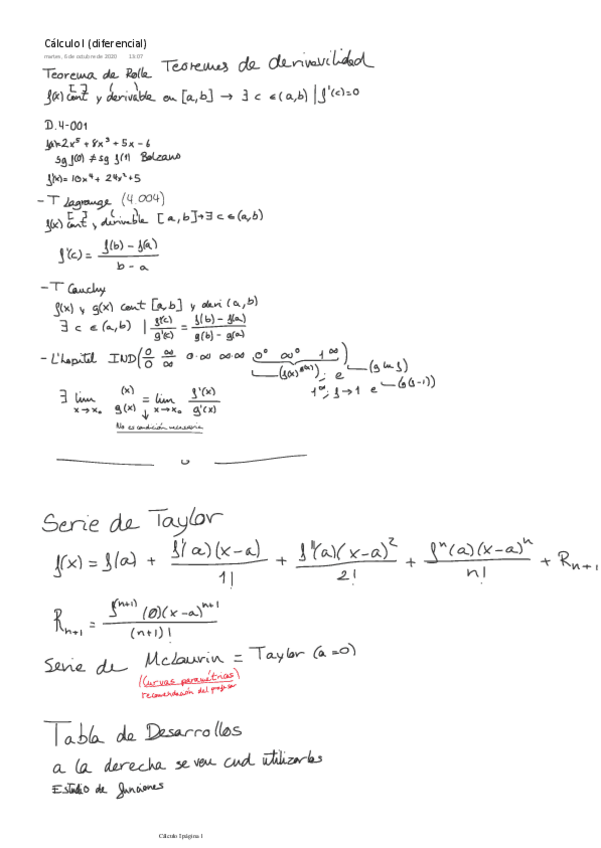 Cálculo I (diferencial)
martes, 6 de octubre de 2020 13:07
Teoremas de derivavilidad
Teorema de Rolle
f(x) cont y derivable en [a,b] → ∃ c ∈ (a,b) | f'(c)=0
D.4-001
f(x)=2x⁵ + 8x³ + 5x - 6
sg f(0) ≠ sg f(1) Bolzano
f'(x)= 10x⁴ + 24x² + 5
- T Lagrange (4.004)
f(x) cont y derivable [a,b] → ∃ c ∈ (a,b)
f'(c) = (f(b) - f(a)) / (b - a)
- T Cauchy
f(x) y g(x) cont [a,b] y deri (a,b)
∃ c ∈ (a,b) | f'(c)/g'(c) = (f(b) - f(a)) / (g(b) - g(a))
- L'hopitel IND (0/0 ∞/∞ 0·∞ ∞·∞ 0⁰ ∞⁰ 1^∞)
(f(x)^g(x)); e
1^∞; f→1 e (g(f-1))
∃ lim x→x₀ (x)/g(x) = lim x→x₀ f'(x)/g'(x)
No es condición necesaria
Serie de Taylor
f(x) = f(a) + f'(a)(x-a)/1! + f''(a)(x-a)²/2! + fⁿ(a)(x-a)ⁿ/n! + Rn+1
Rn+1 = f^(n+1)(0)(x-a)^(n+1)/(n+1)!
Serie de McLaurin = Taylor (a=0)
(Curvas paramétrias)
recomendación del profesor
Tabla de Desarrollos
a la derecha se ven cud utilizarlos
Estudio de funciones
Cálculo I página 1